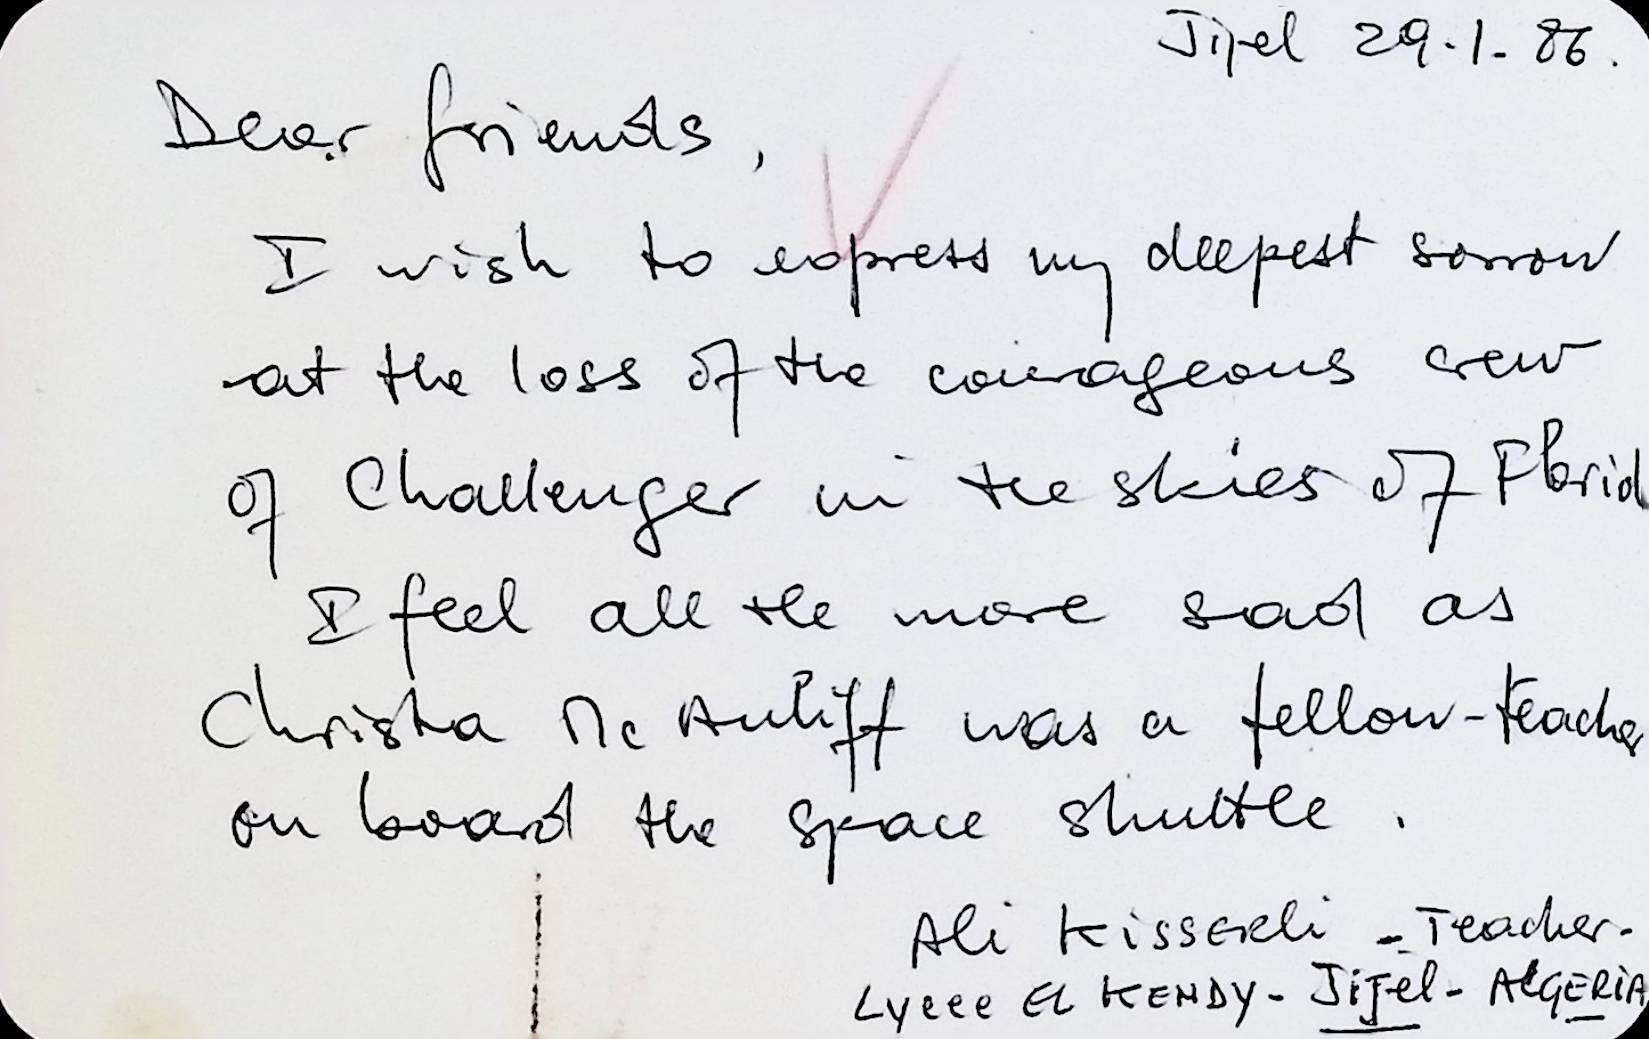 Jijel 29.1.86.
Dear friends,
I wish to express my deepest sorrow
at the loss of the courageous crew
of Challenger in the skies of Florid
I feel all the more sad as
Christa Mc Auliff was a fellow-teacher
on board the space shuttle.
Ali Kisserli - Teacher-
Lycee El KENDY - Jijel - ALGERIA